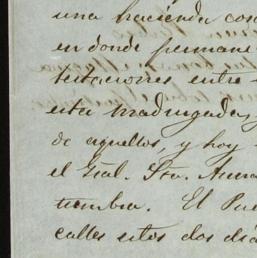 una hacienda con
en donde permane
tentaciones entre
esta madrugada,
de aquellos, y hoy
el Gral. Sta. Anna
tumba. El Pue
calles estos dos día